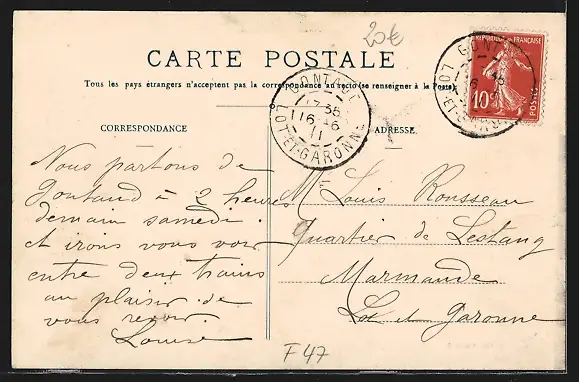 20€
CARTE POSTALE
Tous les pays étrangers n'acceptent pas la correspondance au recto (se renseigner à la Poste)
CORRESPONDANCE
ADRESSE
GONTAUD
17 35
16 -6
11
LOT-ET-GARONNE
REPUBLIQUE FRANÇAISE
10
POSTES
GONT
LOT-ET-GARONNE
Nous partons de
Gontaud à 2 heures
demain samedi
et irons vous voir
entre deux trains
au plaisir de
vous revoir.
Louise
Mr Louis Rousseau
Quartier de Lestang
Marmande
Lot et Garonne
F47